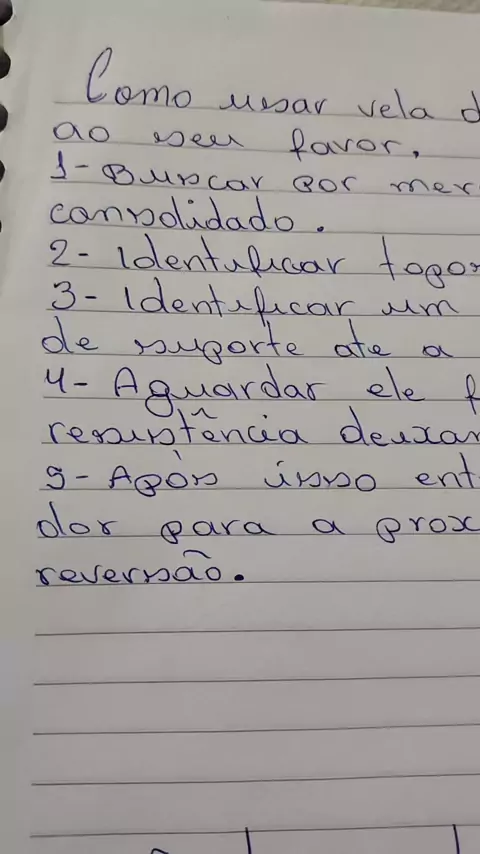 Como usar vela d
ao seu favor.
1- Buscar por mer
consolidado.
2- Identificar topos
3- Identificar um
de suporte ate a
4- Aguardar ele f
resistência deixar
5- Após isso ent
dor para a prox
reversão.